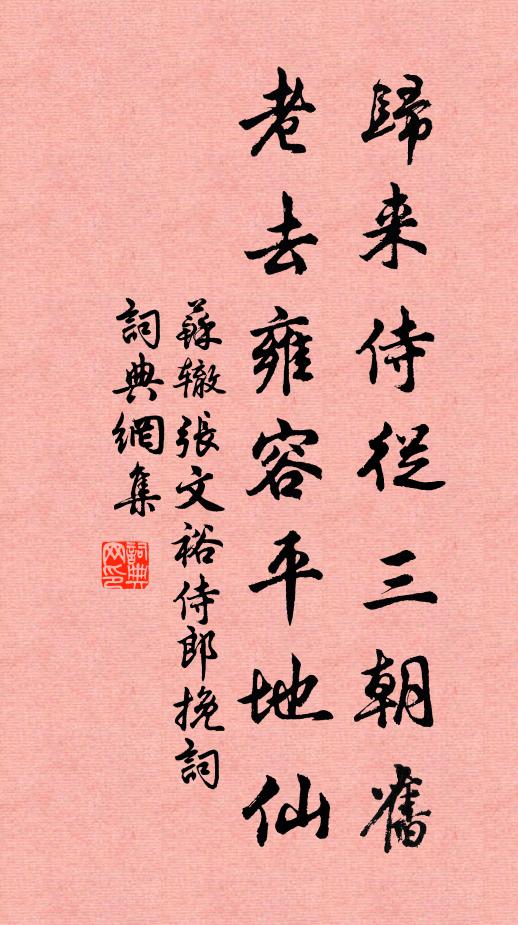 歸来侍從三朝舊
老去雍容平地仙
蘇辙張文裕侍郎挽詞
詞典網集
詞典网印